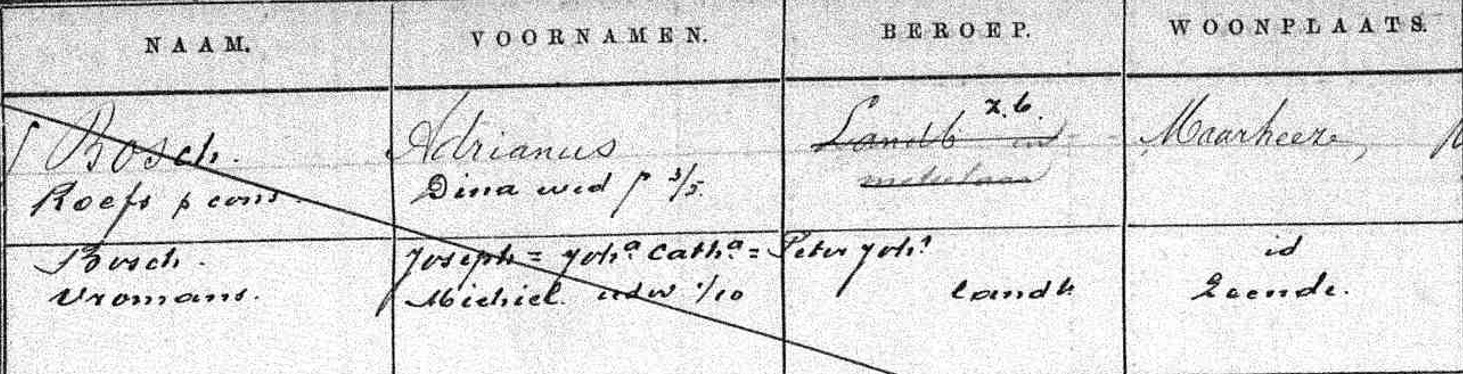 NAAM. VOORNAMEN. BEROEP. WOONPLAATS.
Bosch. Adrianus Landb z.b. Maarheeze,
Roefs p cons. Dina wed p 3/5.
Bosch. Joseph = Joh.a Cath.a = Peter Joh.s id
Vromans. Michiel. 1/10 landb Leende.